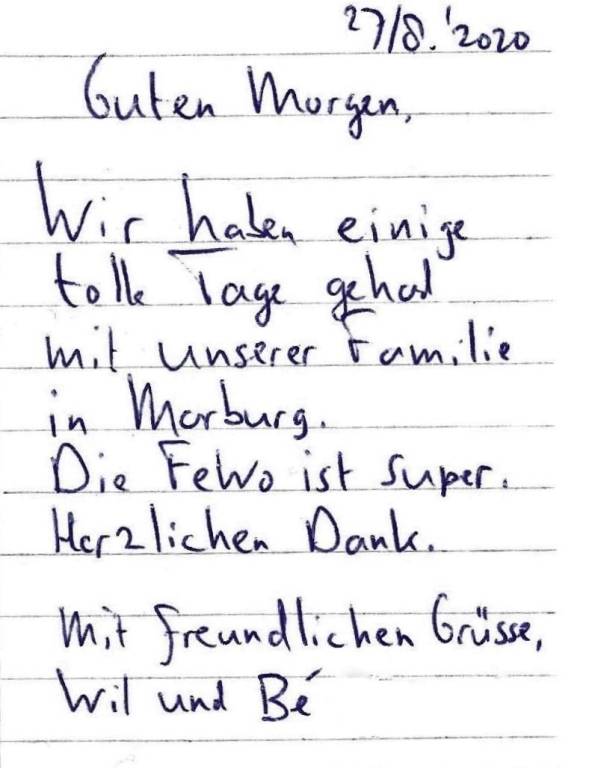 27/8.'2020
Guten Morgen,
Wir haben einige
tolle Tage gehad
mit unserer Familie
in Marburg.
Die FeWo ist super.
Herzlichen Dank.
Mit freundlichen Grüsse,
Wil und Bé